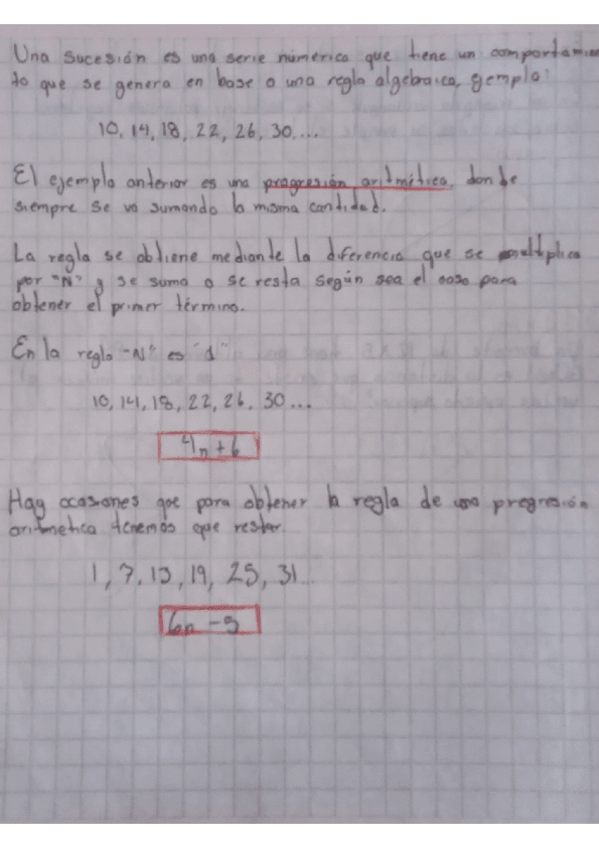 Una sucesión es una serie númerica que tiene un comportamien
to que se genera en base a una regla algebraica, ejemplo:
10, 14, 18, 22, 26, 30,...
El ejemplo anterior es una progresión aritmética, donde
siempre se va sumando la misma cantidad.
La regla se obtiene mediante la diferencia que se multiplica
por "N" y se suma o se resta según sea el caso para
obtener el primer término.
En la regla "N" es "d"
10, 14, 18, 22, 26, 30...
4n+6
Hay ocasiones que para obtener la regla de una progresión
aritmetica tenemos que restar.
1, 7, 13, 19, 25, 31...
6n-5